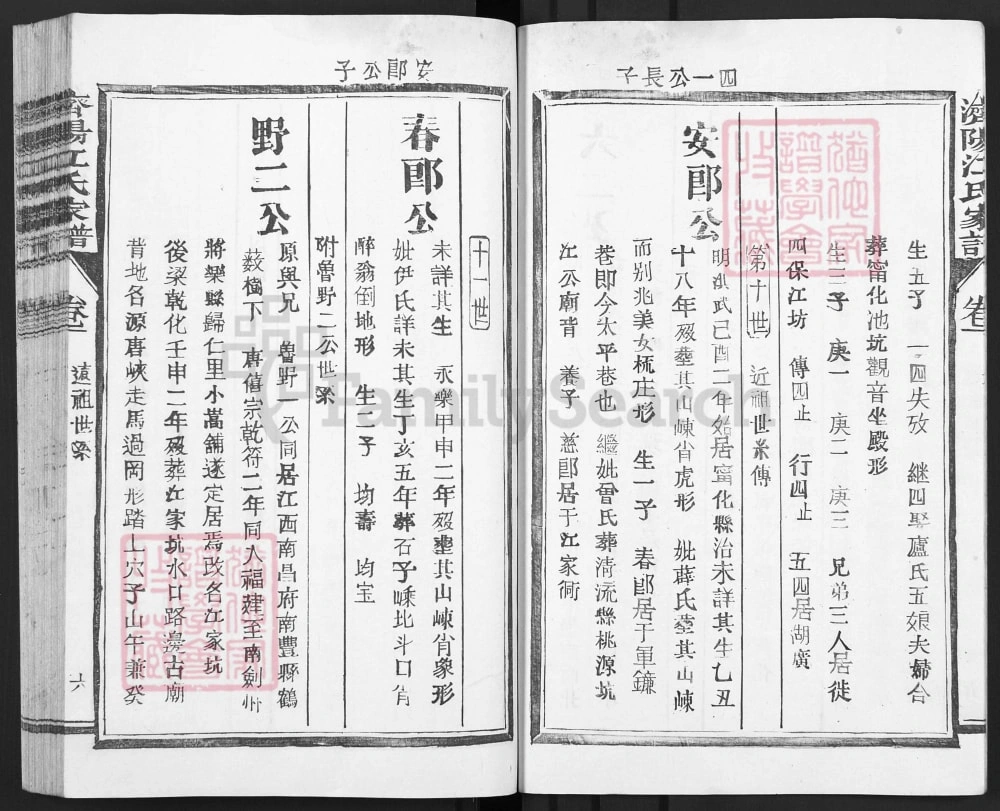 濟陽江氏家譜
卷一
四一公長子
生五子 一四失攷 繼四娶廬氏五娘夫婦合
葬甯化池坑觀音坐殿形
生三子 庚一 庚二 庚三 兄弟三人居徙
四保江坊 傳四止 行四止 五四居湖廣
第十世 近祖世系傳
安郎公
明洪武己酉二年始居甯化縣治未詳其生乙丑
十八年歿塟其山崠肖虎形 妣薛氏塟其山崠
而别兆美女梳庄形 生一子 春郎居于軍鐮
巷即今太平巷也 繼妣曾氏葬清流縣桃源坑
江公廟背 養子 慈郎居于江家衕
安郎公子
十一世
春郎公
未詳其生 永樂甲申二年歿塟其山崠肖象形
妣伊氏詳未其生丁亥五年葬石子嵊北斗口肖
醉翁倒地形 生二子 均壽 均宝
附魯野二公世系
野二公
原與兄 魯野一公同居江西南昌府南豐縣鶴
薮橋下 唐僖宗乾符二年同入福建至南劍州
將樂縣歸仁里小嵩舖遂定居焉改名江家坑
後梁乾化壬申二年歿葬江家坑水口路邊古廟
背地名源唐峽走馬過岡形踏山穴子山午兼癸
濟陽江氏家譜
卷一
遠祖世系
六
FamilySearch